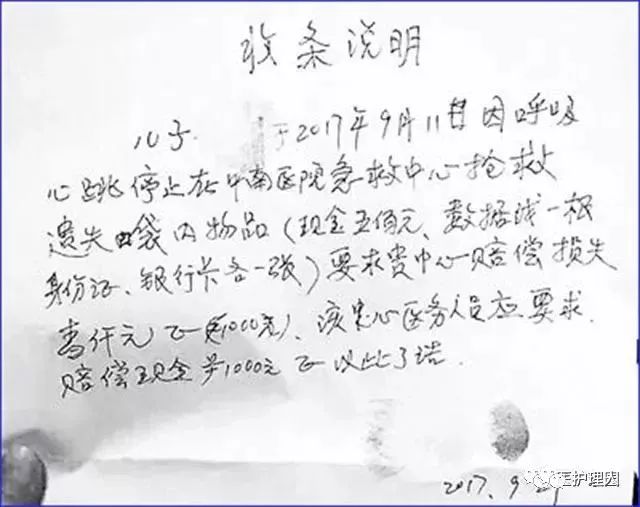 收条说明
儿子 于2017年9月11日因呼吸
心跳停止在中南医院急救中心抢救
遗失口袋内物品(现金五佰元、数据线一根
身份证、银行卡各一张)要求贵中心赔偿损失
壹仟元正(¥1000元)、该中心医务人员应要求.
赔偿现金¥1000元正 以此了结.
2017.9.
护理园